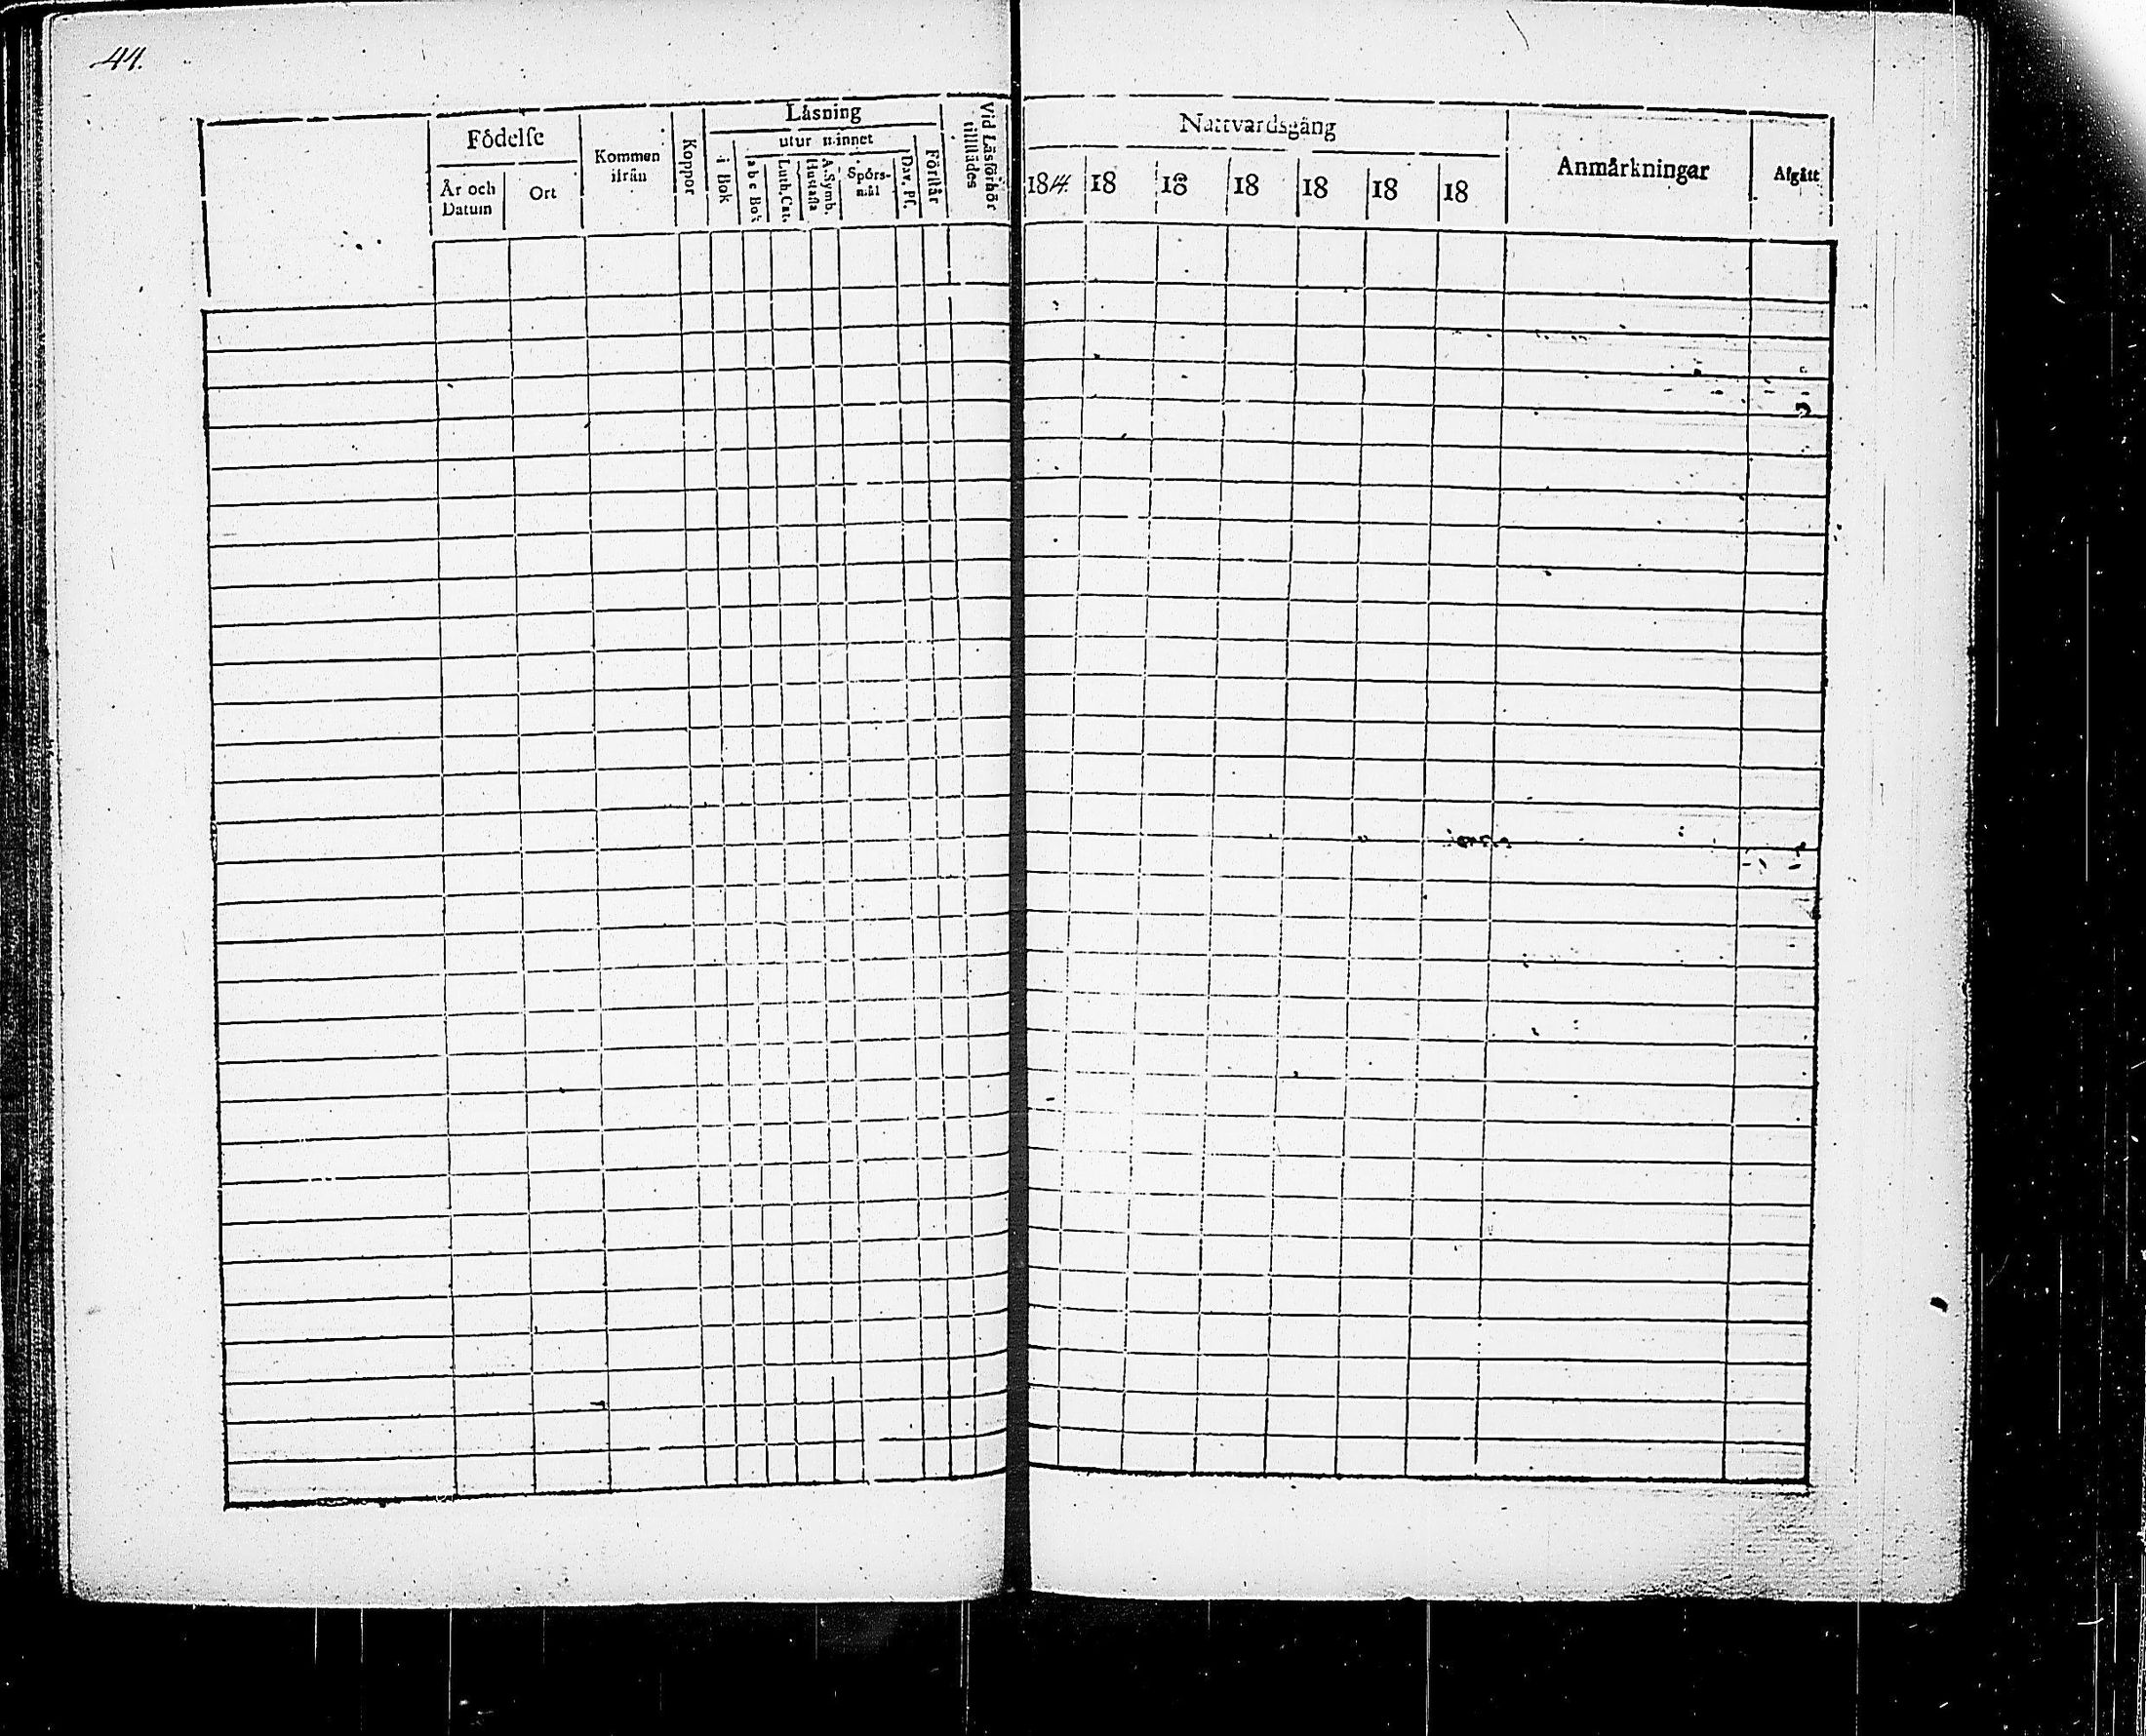 41.
Läsning
Vid Läsförhör tillstädes
Nattvardsgång
Födelse
utur minnet
Kommen ifrån
Koppor
Anmärkningar
Afgått
År och Datum
Ort
i Bok
a b c Bok
Luth. Cat.
Hustafla
A. Symb.
Spörsmål
Dav. Ps.
Förstår
1814. 18 18 18 18 18 18